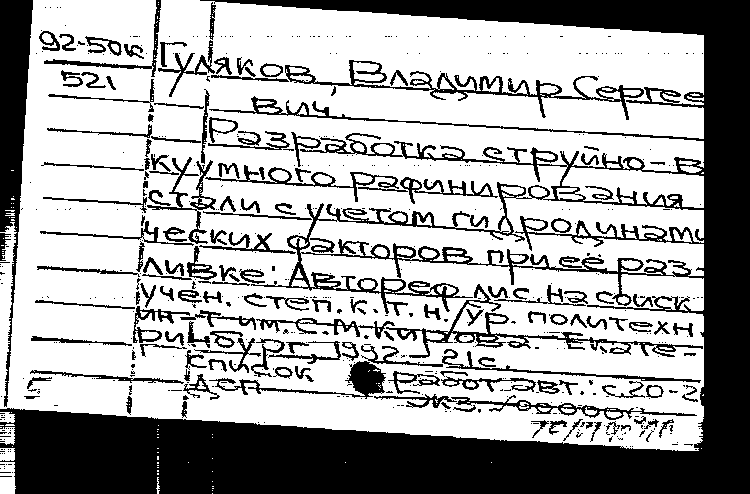 92-50к
521
Гуляков, Владимир Сергее
вич.
Разработка струйно-в
куумного рафинирования
стали с учетом гидродинами
ческих факторов при её раз-
ливке: Автореф дис. на соиск
учен. степ. к. т. н. /Ур. политехн.
ин-т им. С. М. Кирова. Екате-
ринбург, 1992.- 21с.
список работ авт.: с. 20-2
ДСП экз.
5